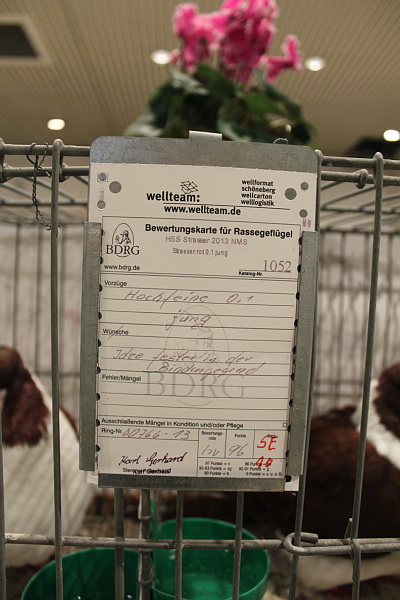 wellteam:
www.wellteam.de
wellformat
schöneberg
wellcarton
welllogistik
BDRG
www.bdrg.de
Bewertungskarte für Rassegeflügel
HSS Strasser 2013 NMS
Strasser rot 0,1 jung
Katalog-Nr. 1052
Vorzüge
Hochfeine 0,1
jung
Wünsche
Idee fester in der
Bindungegend
BDRG
Fehler/Mängel
Ausschließende Mängel in Kondition und/oder Pflege
Ring-Nr. 13
Bewertungs-
note
Punkte
96
SE
Karl Gerhard
Karl Gerhard
97 Punkte = v